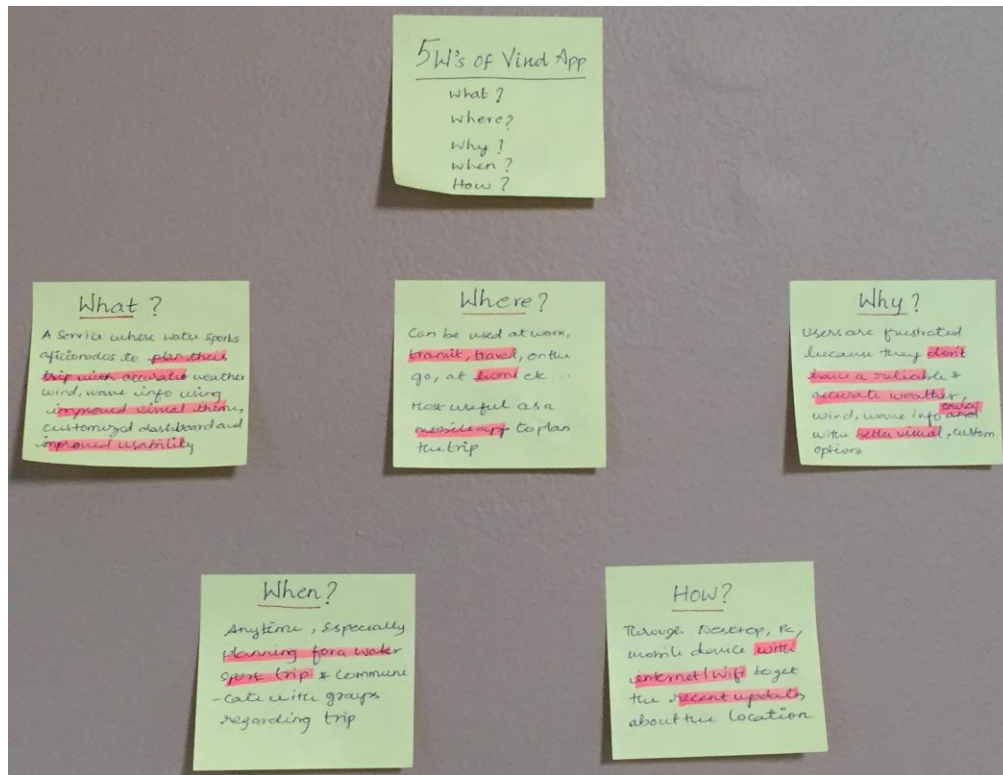 5 W's of Vind App
What?
Where?
Why?
When?
How?
What?
A Service where water sports
aficionados to plan their
trip with accurate weather
wind, wave info using
improved visual theme,
customized dashboard and
improved usability
Where?
Can be used at work,
transit, travel, on the
go, at home etc...
Most useful as a
mobile app to plan
the trip
Why?
Users are frustrated
because they don't
have a reliable &
accurate weather,
wind, wave info and
with better visual, custom
options
When?
Anytime, Especially
planning for a water
sport trip & communi
-cate with groups
regarding trip
How?
Through Desktop, Pc,
mobile device with
internet/wifi to get
the recent updates
about the location